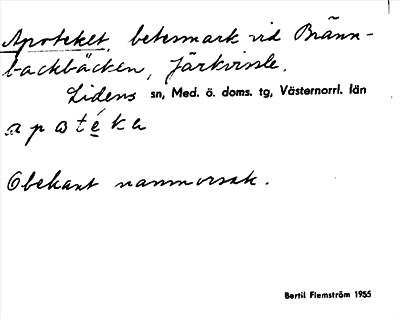 Apoteket, betesmark vid Bränn-
backbäcken, Järkvissle.
Lidens sn, Med. ö. doms. tg, Västernorrl. län
apotéka
Obekant namnorsak.
Bertil Flemström 1955